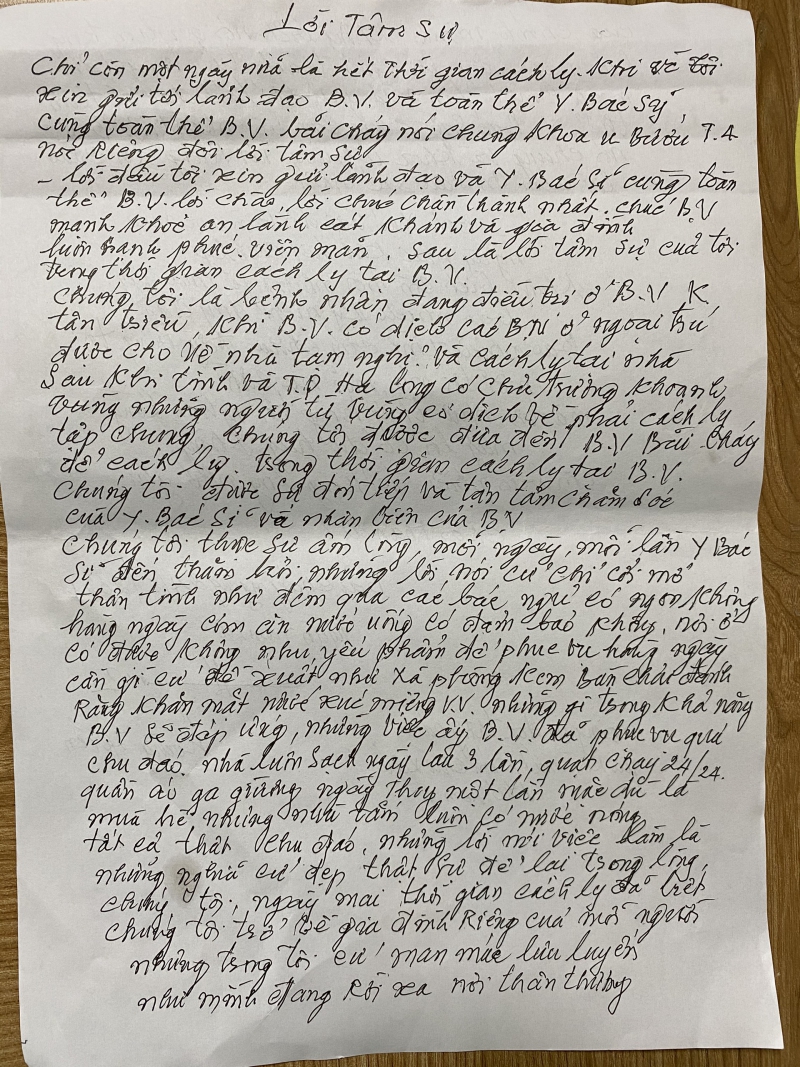 Lời Tâm Sự
Chỉ còn một ngày nữa là hết thời gian cách ly. Khi về tôi
xin gửi tới lãnh đạo B.V. và toàn thể Y. Bác sỹ
cùng toàn thể B.V. bãi cháy nói chung khoa u Bướu T.4
nói Riêng đôi lời tâm sự
- lời đầu tôi xin gửi lãnh đạo và Y. Bác Sĩ cùng toàn
thể B.V. lời chào, lời chúc chân thành nhất. chúc B.V
mạnh khoẻ an lành cát khánh và gia đình
luôn hạnh phúc. viên mãn. Sau là lời tâm sự của tôi
trong thời gian cách ly tại B.V.
Chúng tôi là bệnh nhân đang điều trị ở B.V K
tân triều, khi B.V. có dịch các BN ở ngoại trú
được cho về nhà tạm nghỉ. và cách ly tại nhà
Sau khi tỉnh và T.P Hạ long có chủ trường khoanh
vùng những người từ vùng có dịch về phải cách ly
tập chung, chúng tôi được đưa đến B.V Bãi Cháy
để cách ly. trong thời gian cách ly tại B.V.
Chúng tôi được sự đón tiếp và tận tâm chăm sóc
của Y. Bác Sĩ và nhân viên của BV
Chúng tôi thực sự ấm lòng, mỗi ngày, mỗi lần Y Bác
Sĩ đến thăm hỏi, những lời nói cử chỉ cởi mở
thân tình như đêm qua các bác ngủ có ngon không
hàng ngày cơm ăn nước uống có đảm bảo không, nơi ở
có được không nhu yếu phẩm để phục vụ hàng ngày
cần gì cứ đề xuất như Xà phòng kem Bàn chải đánh
Răng khăn mặt nước xúc miệng V.V. những gì trong khả năng
B.V sẽ đáp ứng, những việc ấy B.V. đã phục vụ quá
chu đáo. nhà luôn sạch ngày lau 3 lần, quạt chạy 24/24.
quần áo ga giường ngày thay một lần mặc dù là
mùa hè nhưng nhà tắm luôn có nước nóng
tất cả thật chu đáo, những lời nói việc làm là
những nghĩa cử đẹp thật sự để lại trong lòng
chúng tôi, ngày mai thời gian cách ly đã hết
chúng tôi trở về gia đình Riêng của mỗi người
nhưng trong tôi cứ man mác lưu luyến
như mình đang Rời xa nơi thân thương